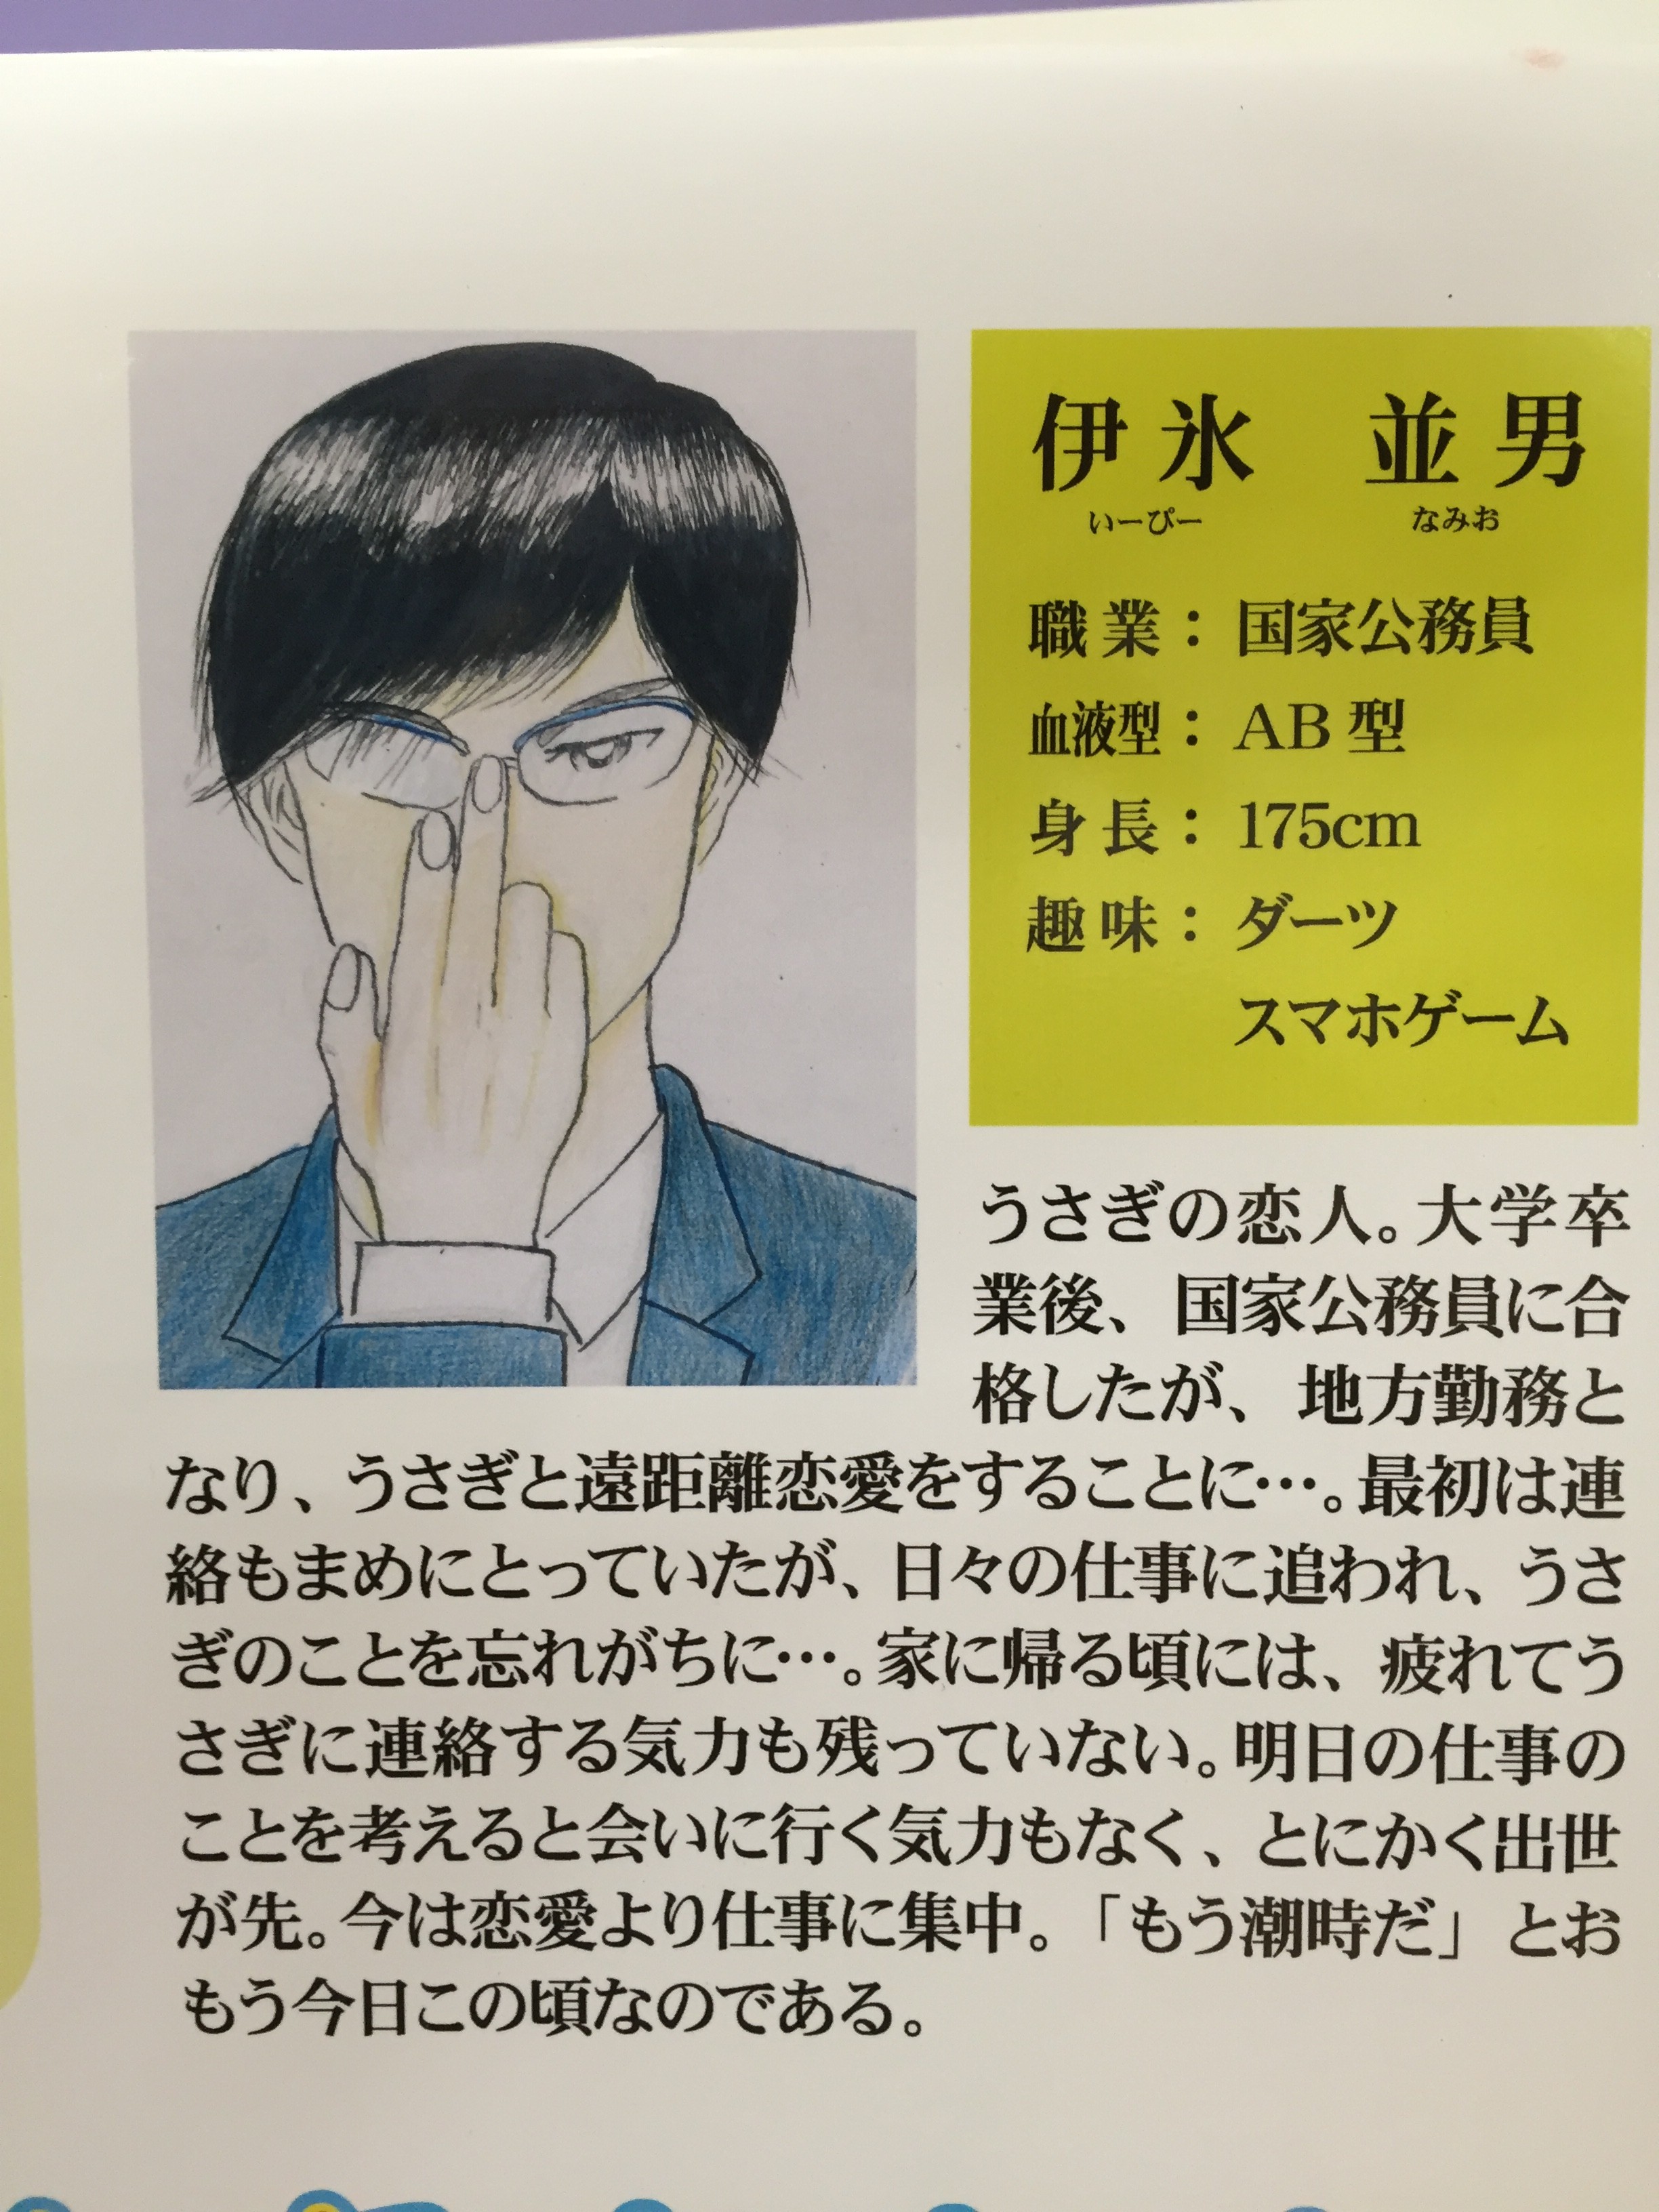 伊氷 並男
いーぴー なみお
職業：国家公務員
血液型：AB型
身長：175cm
趣味：ダーツ
スマホゲーム
うさぎの恋人。大学卒
業後、国家公務員に合
格したが、地方勤務と
なり、うさぎと遠距離恋愛をすることに…。最初は連
絡もまめにとっていたが、日々の仕事に追われ、うさ
ぎのことを忘れがちに…。家に帰る頃には、疲れてう
さぎに連絡する気力も残っていない。明日の仕事の
ことを考えると会いに行く気力もなく、とにかく出世
が先。今は恋愛より仕事に集中。「もう潮時だ」とお
もう今日この頃なのである。